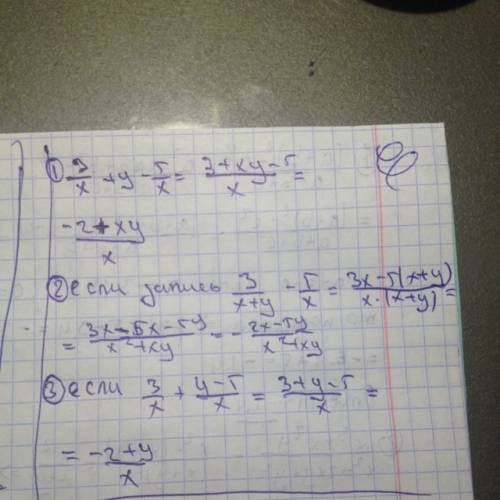 ① 3/x + y - 5/x = (3+xy-5)/x =
(-2+xy)/x
② если запись 3/(x+y) - 5/x = (3x-5(x+y))/(x·(x+y)) =
= (3x-5x-5y)/(x²+xy) = - (2x-5y)/(x²+xy)
③ если 3/x + (y-5)/x = (3+y-5)/x =
= (-2+y)/x